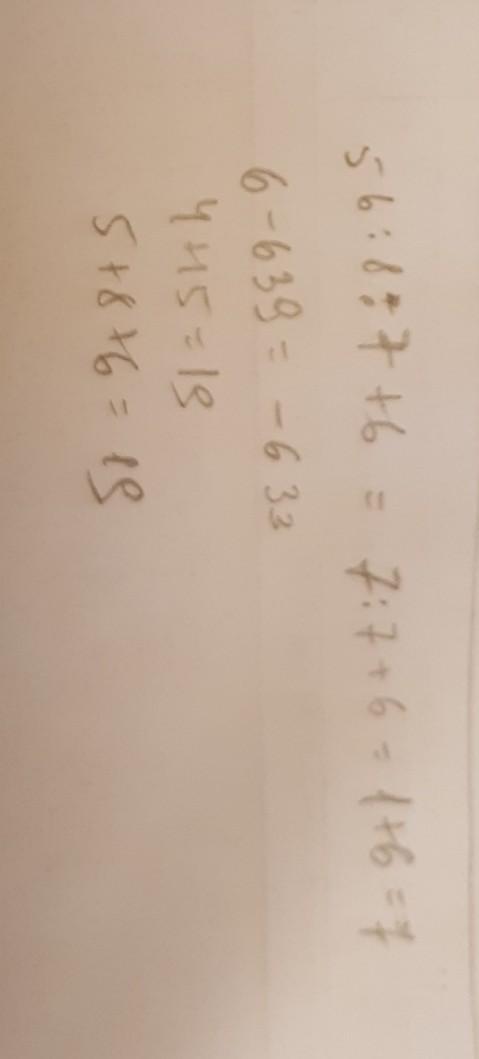 56:8:7+6 = 7:7+6 = 1+6 = 7
6-639 = -633
4+15 = 19
5+8+6 = 19